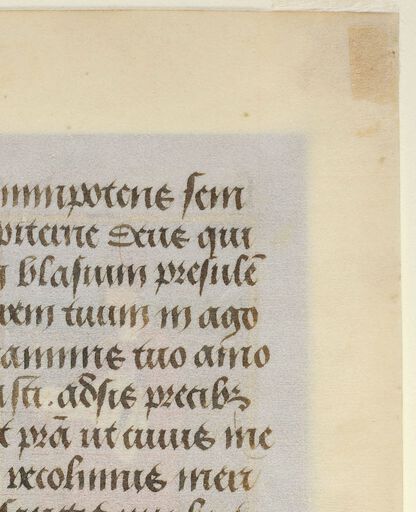 mnipotens sem
piterne deus qui
blasium presulē
tuum in ago
tuo amo
sti. adsis precibꝫ
prā ut cuius me
recolimus meri